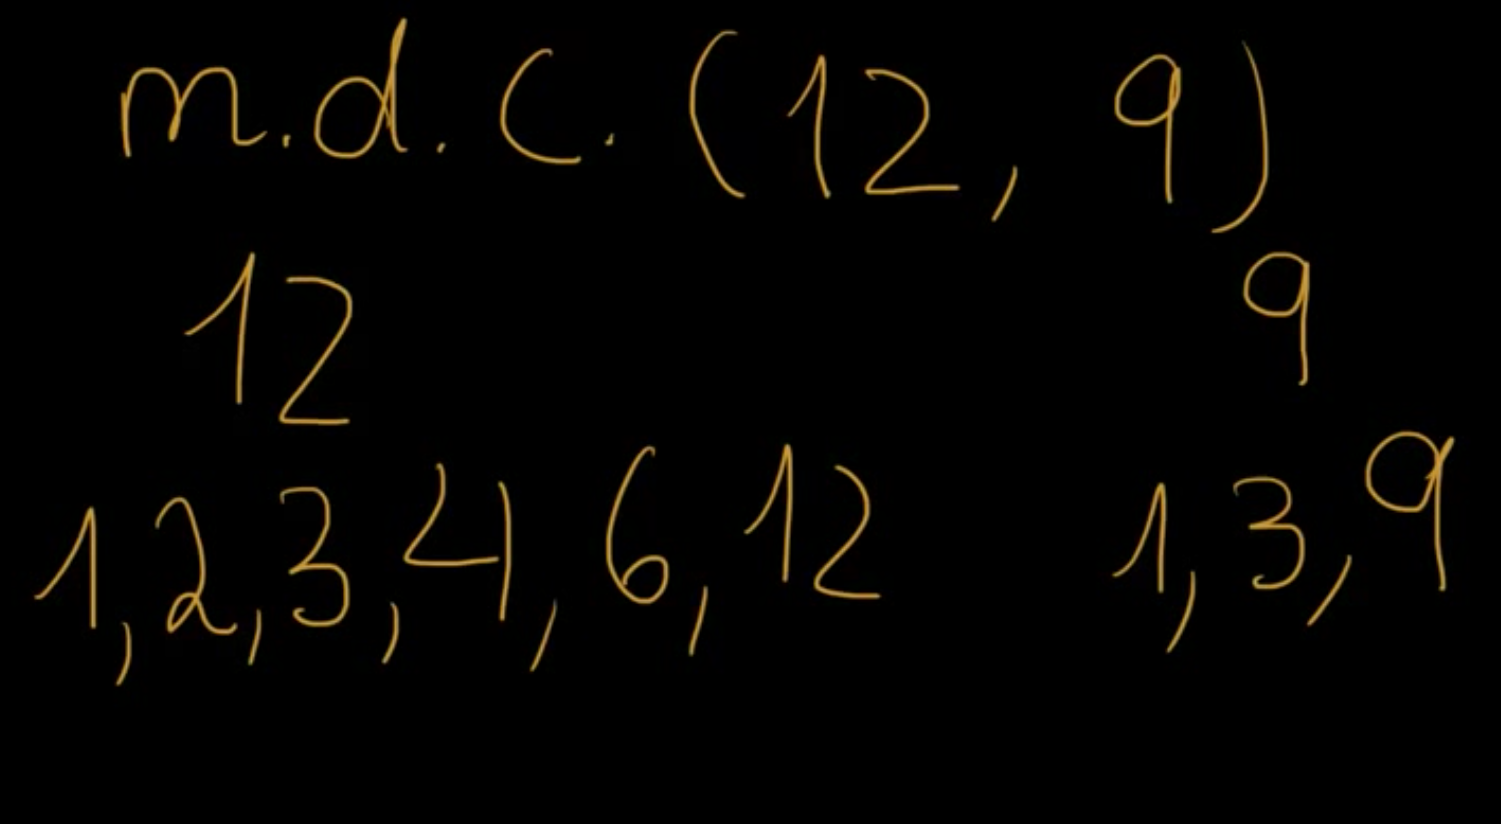 m.d.c. (12, 9)
12 9
1, 2, 3, 4, 6, 12 1, 3, 9